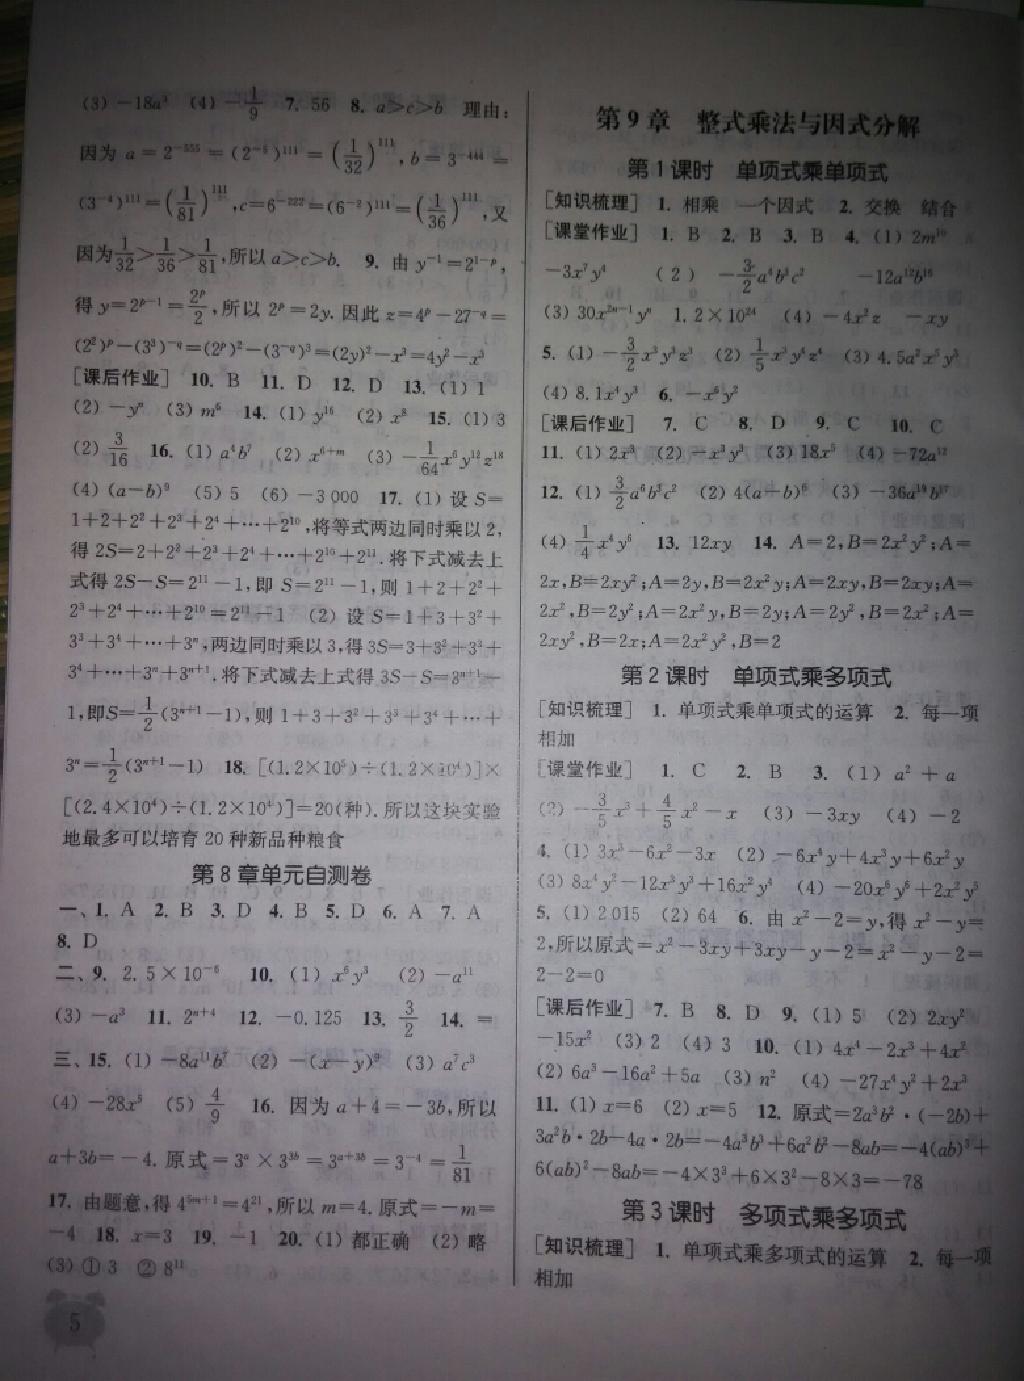 (3) -18a³ (4) -1/9 7. 56 8. a>c>b 理由:
因为 a=2⁻⁵⁵⁵=(2⁻⁵)¹¹¹=(1/32)¹¹¹, b=3⁻⁴⁴⁴=
(3⁻⁴)¹¹¹=(1/81)¹¹¹, c=6⁻²²²=(6⁻²)¹¹¹=(1/36)¹¹¹, 又
因为 1/32>1/36>1/81, 所以 a>c>b. 9. 由 y⁻¹=2¹⁻ᵖ,
得 y=2ᵖ⁻¹=2ᵖ/2, 所以 2ᵖ=2y. 因此 z=4ᵖ-27^(-q)=
(2²)ᵖ-(3³)^(-q)=(2ᵖ)²-(3^(-q))³=(2y)²-x³=4y²-x³
[课后作业] 10. B 11. D 12. D 13. (1) 1
(2) -yⁿ (3) m⁶ 14. (1) y¹⁶ (2) x⁸ 15. (1) 3
(2) 3/16 16. (1) a⁴b⁷ (2) x⁶⁺ᵐ (3) -1/64 x⁶y¹²z¹⁸
(4) (a-b)⁹ (5) 5 (6) -3 000 17. (1) 设 S=
1+2+2²+2³+2⁴+…+2¹⁰, 将等式两边同时乘以2,
得 2S=2+2²+2³+2⁴+…+2¹⁰+2¹¹. 将下式减去上
式得 2S-S=2¹¹-1, 即 S=2¹¹-1, 则 1+2+2²+
2³+2⁴+…+2¹⁰=2¹¹-1 (2) 设 S=1+3+3²+
3³+3⁴+…+3ⁿ, 两边同时乘以3, 得 3S=3+3²+3³+
3⁴+…+3ⁿ+3ⁿ⁺¹. 将下式减去上式得 3S-S=3ⁿ⁺¹-
1, 即S=1/2(3ⁿ⁺¹-1), 则 1+3+3²+3³+3⁴+…+
3ⁿ=1/2(3ⁿ⁺¹-1) 18. [(1.2×10⁵)÷(1.2×10⁴)]×
[(2.4×10⁴)÷(1.2×10⁴)]=20(种). 所以这块实验
地最多可以培育 20 种新品种粮食
第 8 章单元自测卷
一、1. A 2. B 3. D 4. B 5. D 6. A 7. A
8. D
二、9. 2.5×10⁻⁶ 10. (1) x⁶y³ (2) -a¹¹
(3) -a³ 11. 2ⁿ⁺⁴ 12. -0.125 13. 3/2 14. =
三、15. (1) -8a¹¹b⁷ (2) -(x-y)⁹ (3) a⁷c³
(4) -28x⁵ (5) 4/9 16. 因为 a+4=-3b, 所以
a+3b=-4. 原式=3ᵃ×3³ᵇ=3ᵃ⁺³ᵇ=3⁻⁴=1/81
17. 由题意, 得 4⁵ᵐ⁺¹=4²¹, 所以 m=4. 原式=-m=
-4 18. x=3 19. -1 20. (1) 都正确 (2) 略
(3) ① 3 ② 8¹¹
5
第 9 章 整式乘法与因式分解
第 1 课时 单项式乘单项式
[知识梳理] 1. 相乘 一个因式 2. 交换 结合
[课堂作业] 1. B 2. B 3. B 4. (1) 2m¹⁰
-3x⁷y⁴ (2) -3/2 a⁴b³c² -12a¹²b¹⁶
(3) 30x²ⁿ⁻¹yⁿ 1.2×10²⁴ (4) -4x²z -xy
5. (1) -3/2 x³y³z³ (2) 1/5 x³y⁴z⁴ (3) 4.5a²x⁵y³
(4) 8.1x⁴y³ 6. -x⁶y²
[课后作业] 7. C 8. D 9. C 10. C
11. (1) 2x³ (2) -x³y³ (3) 18x⁵ (4) -72a¹²
12. (1) 3/2 a⁶b³c² (2) 4(a+b)⁶ (3) -36a¹⁹b¹⁷
(4) 1/4 x⁴y⁶ 13. 12xy 14. A=2, B=2x²y²; A=
2x, B=2xy²; A=2y, B=2x²y; A=2xy, B=2xy; A=
2x², B=2y²; A=2x²y, B=2y; A=2y², B=2x²; A=
2xy², B=2x; A=2x²y², B=2
第 2 课时 单项式乘多项式
[知识梳理] 1. 单项式乘单项式的运算 2. 每一项
相加
[课堂作业] 1. C 2. B 3. (1) a²+a
(2) -3/5 x³+4/5 x²-x (3) -3xy (4) -2
4. (1) 3x³-6x²-3x (2) -6x⁴y+4x³y+6x²y
(3) 8x⁴y²-12x³y³+16x²y⁴ (4) -20x⁶y⁶+2x²y⁵
5. (1) 2 015 (2) 64 6. 由 x²-2=y, 得 x²-y=
2, 所以原式=x²-3xy+3xy-y-2=x²-y-2=
2-2=0
[课后作业] 7. B 8. D 9. (1) 5 (2) 2xy²
-15x² (3) 2 (4) 3 10. (1) 4x⁴-2x³+4x²
(2) 6a³-16a²+5a (3) n² (4) -27x⁴y²+2x³
11. (1) x=6 (2) x=5 12. 原式=2a³b²·(-2b)+
3a²b·2b-4a·2b=-4a³b³+6a²b²-8ab=-4(ab)³+
6(ab)²-8ab=-4×3³+6×3²-8×3=-78
第 3 课时 多项式乘多项式
[知识梳理] 1. 单项式乘多项式的运算 2. 每一项
相加